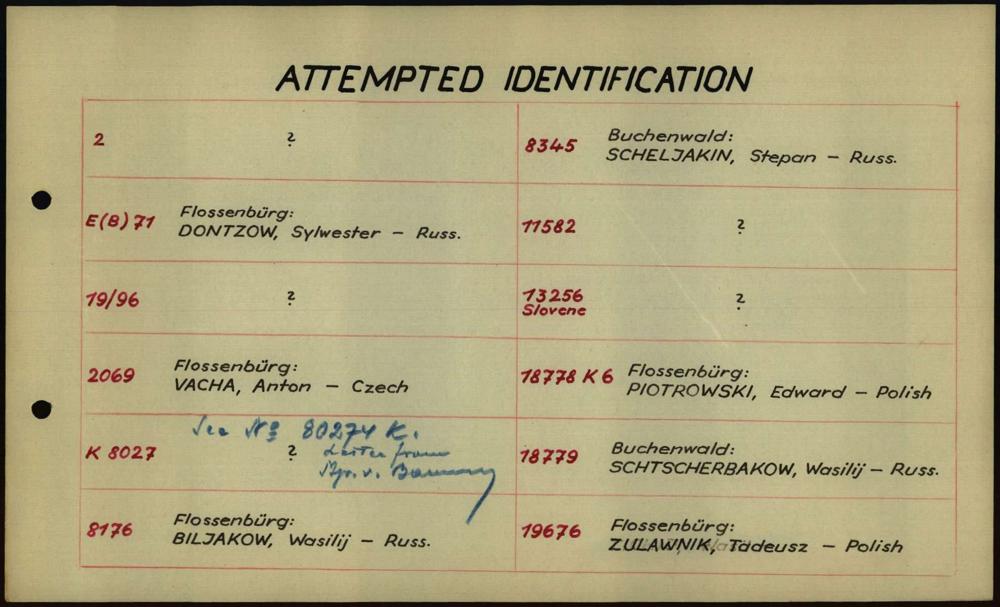 ATTEMPTED IDENTIFICATION
2 ?
E(B) 71 Flossenbürg:
DONTZOW, Sylwester – Russ.
19/96 ?
2069 Flossenbürg:
VACHA, Anton – Czech
See No 80274 K.
K 8027 ? Letter from
8176 Flossenbürg:
BILJAKOW, Wasilij – Russ.
8345 Buchenwald:
SCHELJAKIN, Stepan – Russ.
11582 ?
13256 ?
Slovene
18778 K 6 Flossenbürg:
PIOTROWSKI, Edward – Polish
18779 Buchenwald:
SCHTSCHERBAKOW, Wasilij – Russ.
19676 Flossenbürg:
ZULAWNIK, Tadeusz – Polish